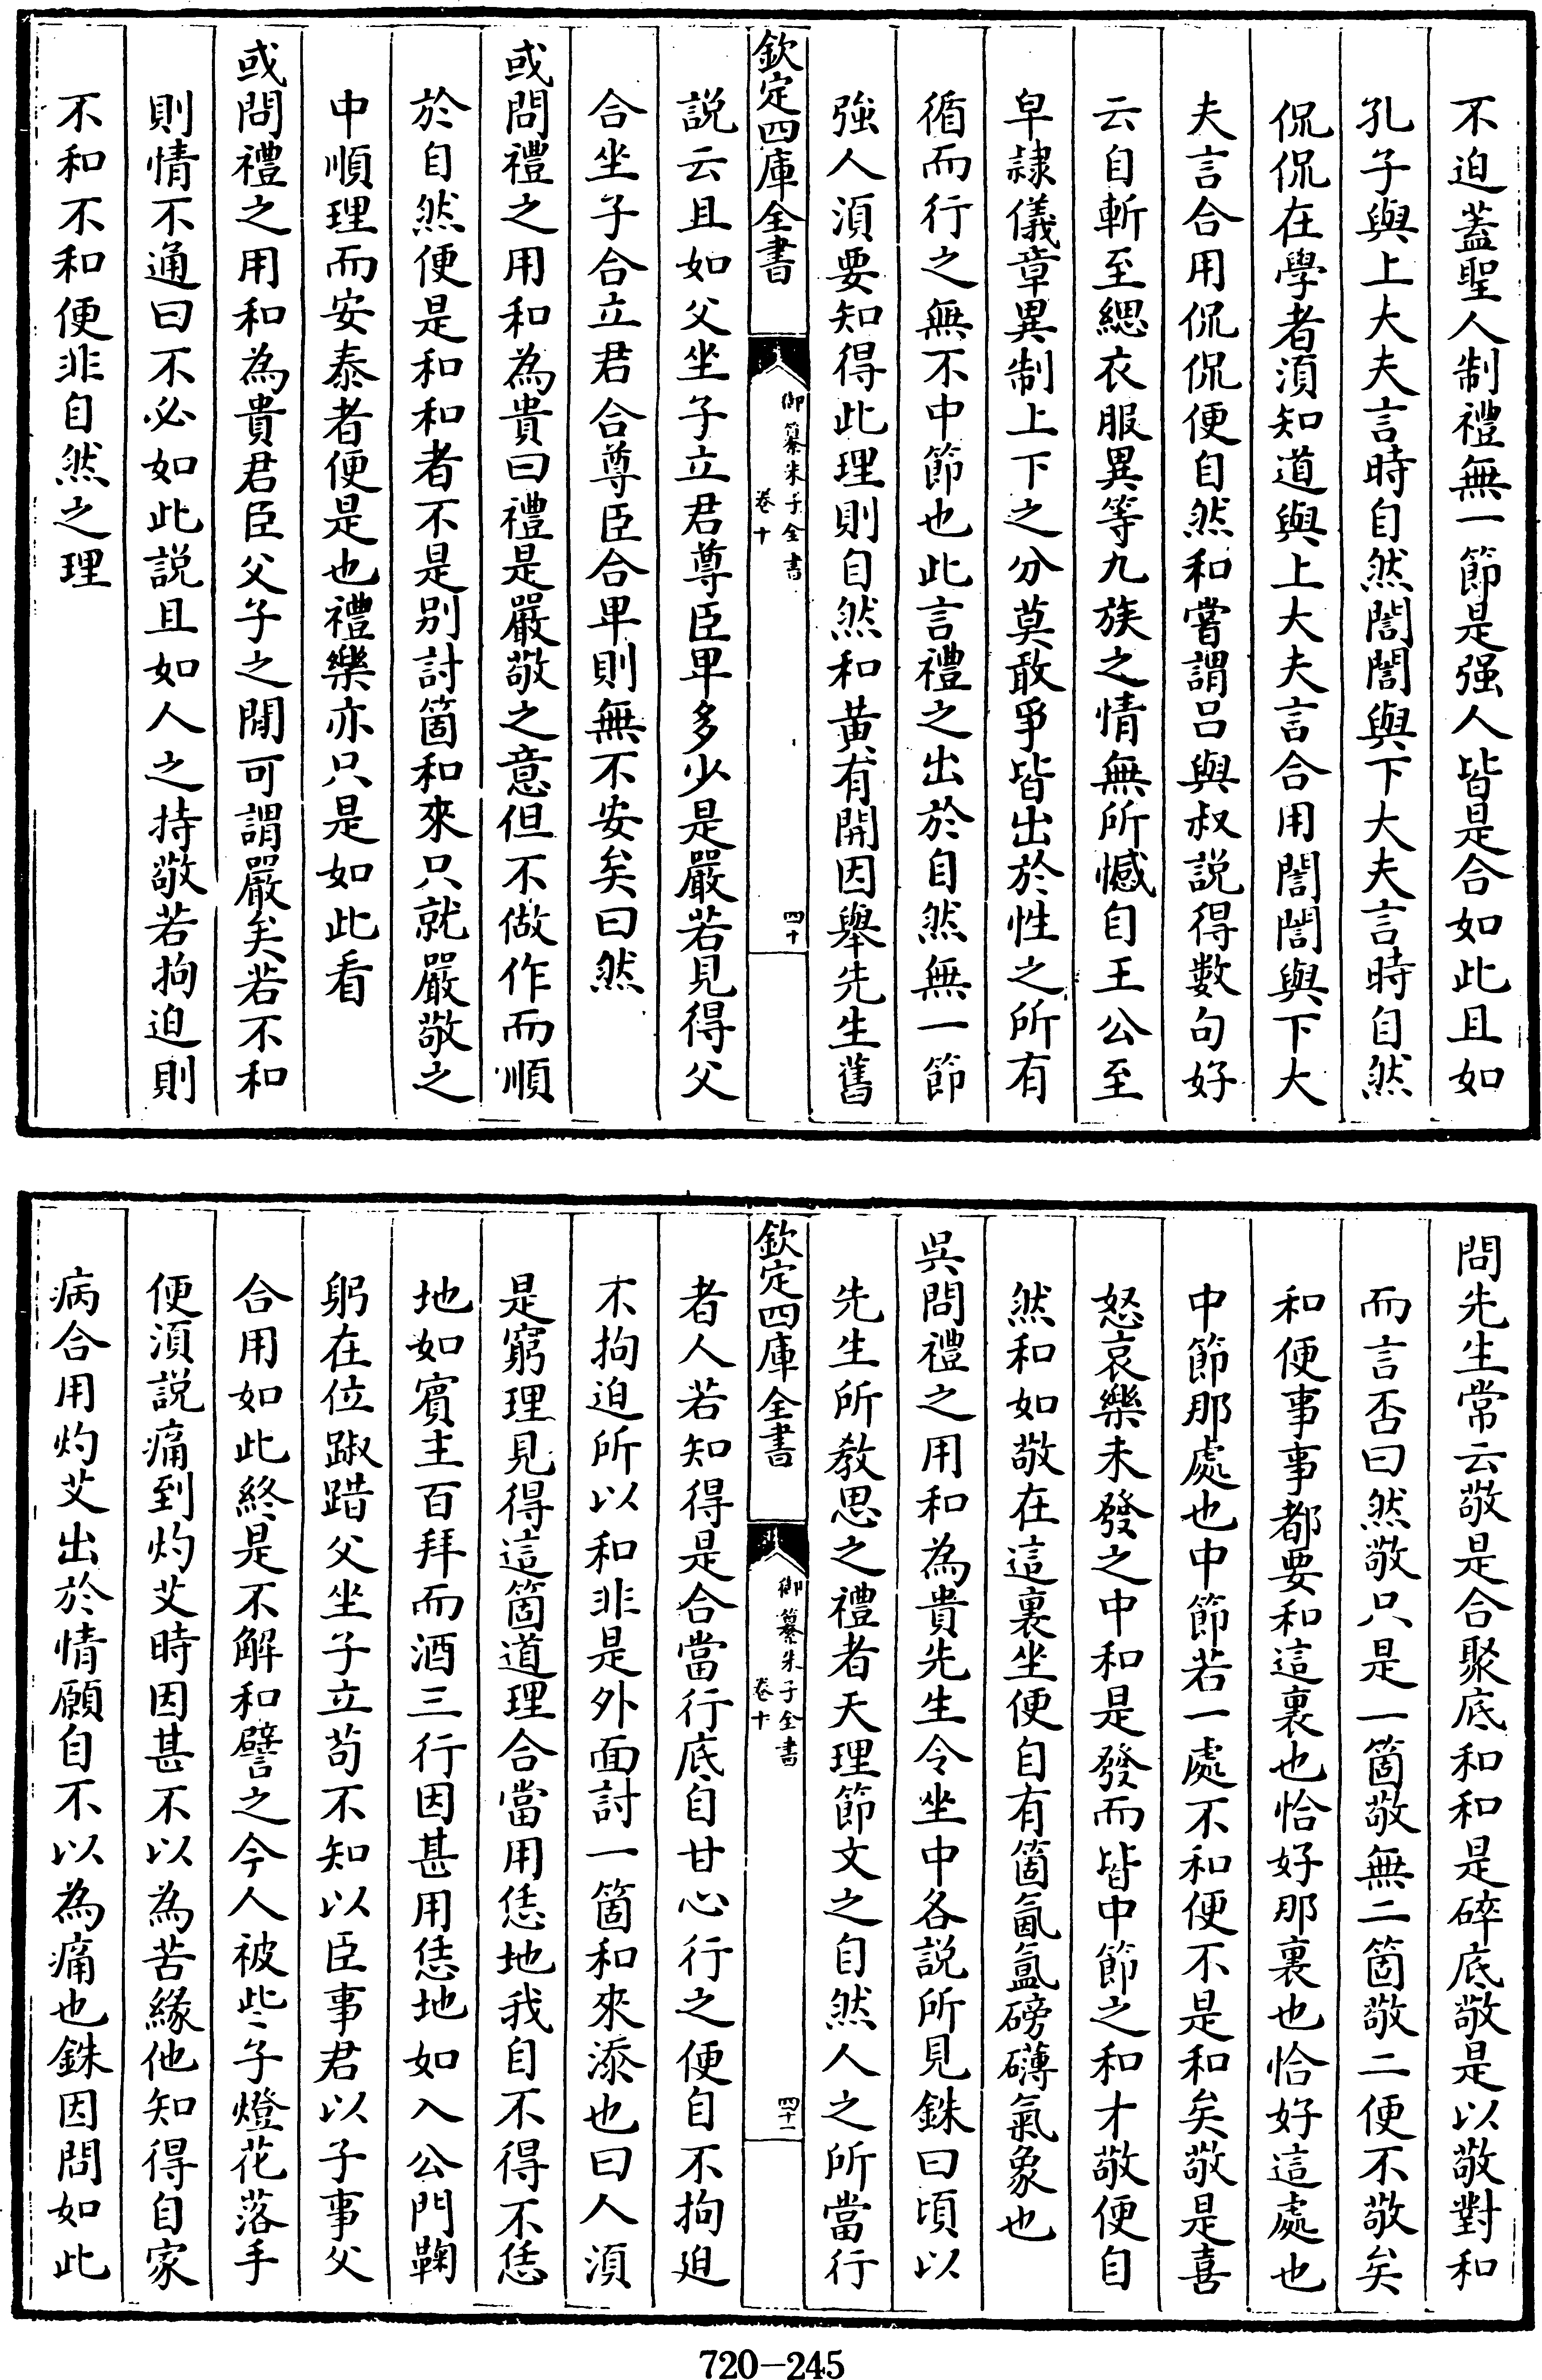 不迫蓋聖人制禮無一節是强人皆是合如此且如
孔子與上大夫言時自然誾誾與下大夫言時自然
侃侃在學者須知道與上大夫言合用誾誾與下大
夫言合用侃侃便自然和嘗謂吕與叔説得數句好
云自斬至緦衣服異等九族之情無所憾自王公至
皁隷儀章異制上下之分莫敢爭皆出於性之所有
循而行之無不中節也此言禮之出於自然無一節
強人須要知得此理則自然和黄有開因舉先生舊
欽定四庫全書
御纂朱子全書
卷十
四十
説云且如父坐子立君尊臣卑多少是嚴若見得父
合坐子合立君合尊臣合卑則無不安矣曰然
或問禮之用和為貴曰禮是嚴敬之意但不做作而順
於自然便是和和者不是别討箇和來只就嚴敬之
中順理而安泰者便是也禮樂亦只是如此看
或問禮之用和為貴君臣父子之間可謂嚴矣若不和
則情不通曰不必如此説且如人之持敬若拘迫則
不和不和便非自然之理
問先生常云敬是合聚底和和是碎底敬是以敬對和
而言否曰然敬只是一箇敬無二箇敬二便不敬矣
和便事事都要和這裏也恰好那裏也恰好這處也
中節那處也中節若一處不和便不是和矣敬是喜
怒哀樂未發之中和是發而皆中節之和才敬便自
然和如敬在這裏坐便自有箇氤氳磅礴氣象也
吳問禮之用和為貴先生令坐中各説所見銖曰頃以
先生所教思之禮者天理節文之自然人之所當行
欽定四庫全書
御纂朱子全書
卷十
四十一
者人若知得是合當行底自甘心行之便自不拘迫
不拘迫所以和非是外面討一箇和來添也曰人須
是窮理見得這箇道理合當用恁地我自不得不恁
地如賓主百拜而酒三行因甚用恁地如入公門鞠
躬在位踧踖父坐子立苟不知以臣事君以子事父
合用如此終是不解和譬之今人被些子燈花落手
便須説痛到灼艾時因甚不以為苦緣他知得自家
病合用灼艾出於情願自不以為痛也銖因問如此
720-245